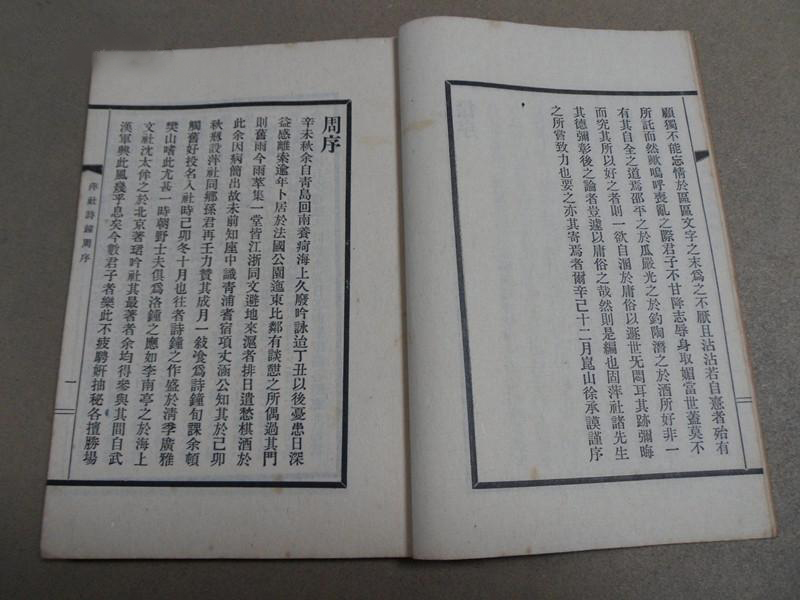 顧獨不能忘情於區區文字之末爲之不厭且沾沾若自憙者殆有
所託而然歟嗚呼喪亂之際君子不甘降志辱身取媚當世蓋莫不
有其自全之道焉邵平之於瓜嚴光之於釣陶潛之於酒所好非一
而究其所以好之者則一欲自溷於庸俗以遯世无悶耳其跡彌晦
其德彌彰後之論者豈遽以庸俗之哉然則是編也固萍社諸先生
之所嘗致力也要之亦其寄焉者爾辛巳十二月崑山徐承謨謹序
周序
辛未秋余自青島回南養疴海上久廢吟詠迨丁丑以後憂患日深
益感離索逾年卜居於法國公園迤東比鄰有談憩之所偶過其門
則舊雨今雨萃集一堂皆江浙同文避地來滬者排日遣愁棋酒於
此余因病簡出故未前知座中識青浦耆宿項丈涵公知其於己卯
秋剏設萍社同鄉孫君再壬力贊其成月一敍飡爲詩鐘旬課余頓
觸舊好投名入社時己卯冬十月也往者詩鐘之作盛於清季廣雅
樊山嗜此尤甚一時朝野士夫俱爲洛鐘之應如李南亭之於海上
文社沈太侔之於北京著珺吟社其最著者余均得參與其間自武
漢軍興此風幾乎息矣今數君子者樂此不疲騁妍抽秘各擅勝場
萍社詩鐘周序
一